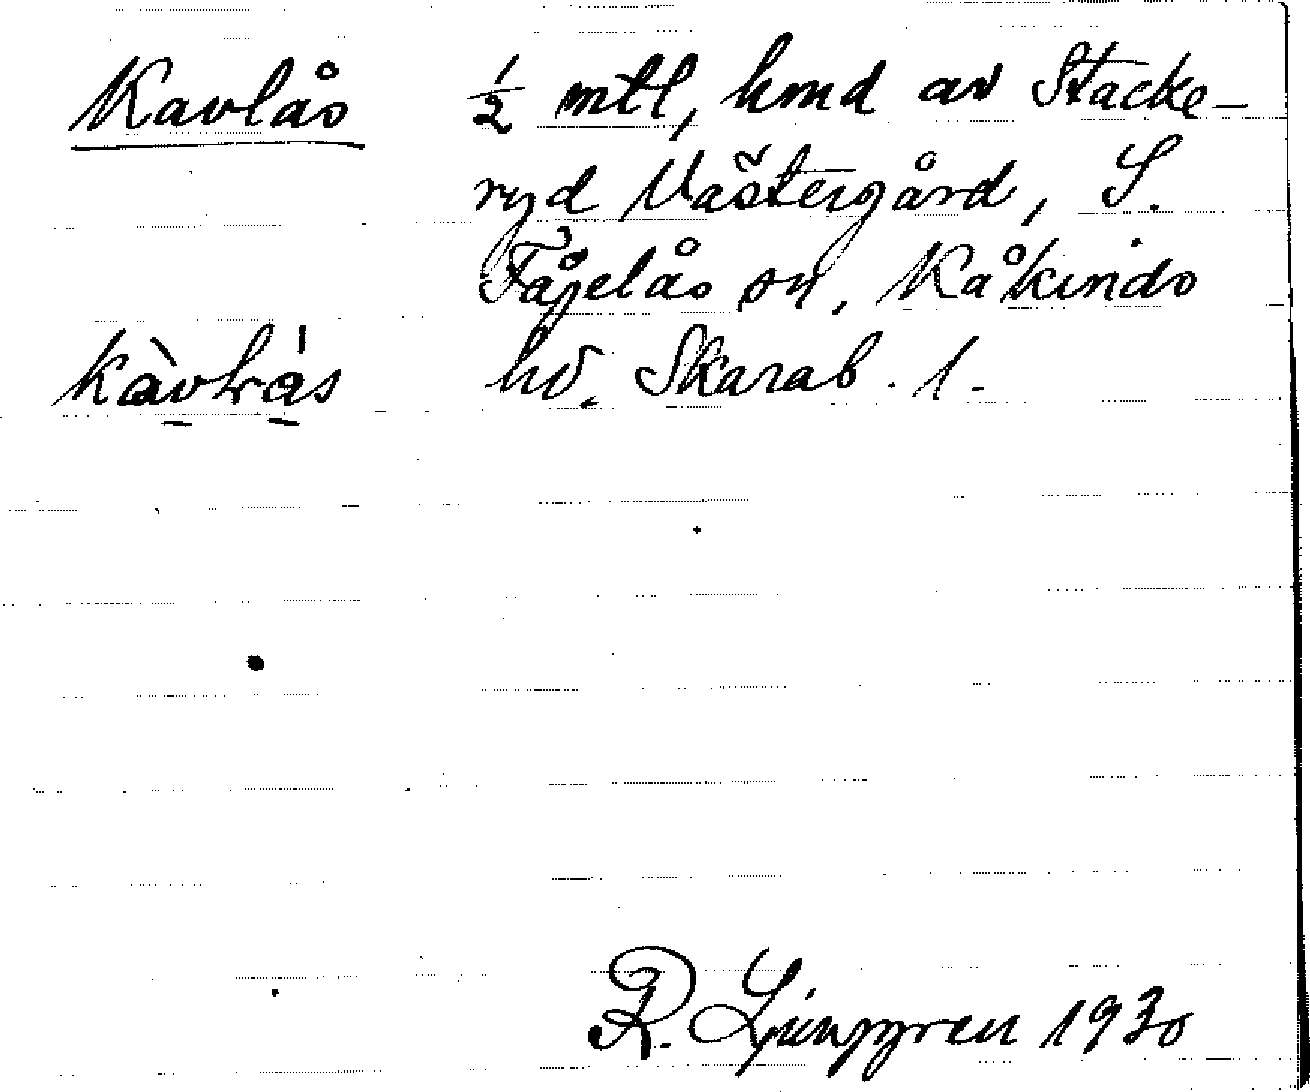 Kavlås ½ mtl, hmd av Stacke-
ryd Västergård, S.
Fågelås sn, Kåkinds
hd. Skarab. l.
R. Ljunggren 1930